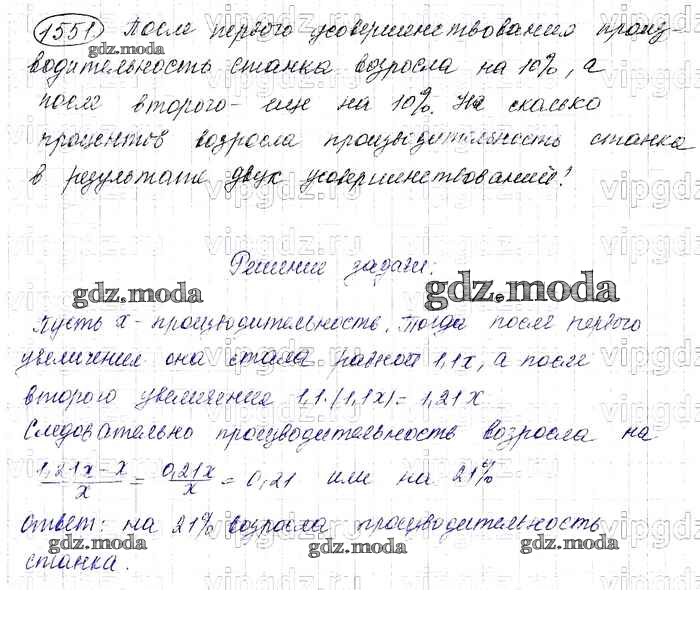 1551 После первого усовершенствования произ-
водительность станка возросла на 10%, а
после второго - еще на 10%. На сколько
процентов возросла производительность станка
в результате двух усовершенствований?
Решение задачи:
Пусть x - производительность. Тогда после первого
увеличения она стала равной 1,1x, а после
второго увеличения 1,1·(1,1x) = 1,21x
Следовательно производительность возросла на
1,21x - x / x = 0,21x / x = 0,21 или на 21%
Ответ: на 21% возросла производительность
станка.
gdz.moda
gdz.moda
gdz.moda
gdz.moda
gdz.moda
gdz.moda
vipgdz.ru